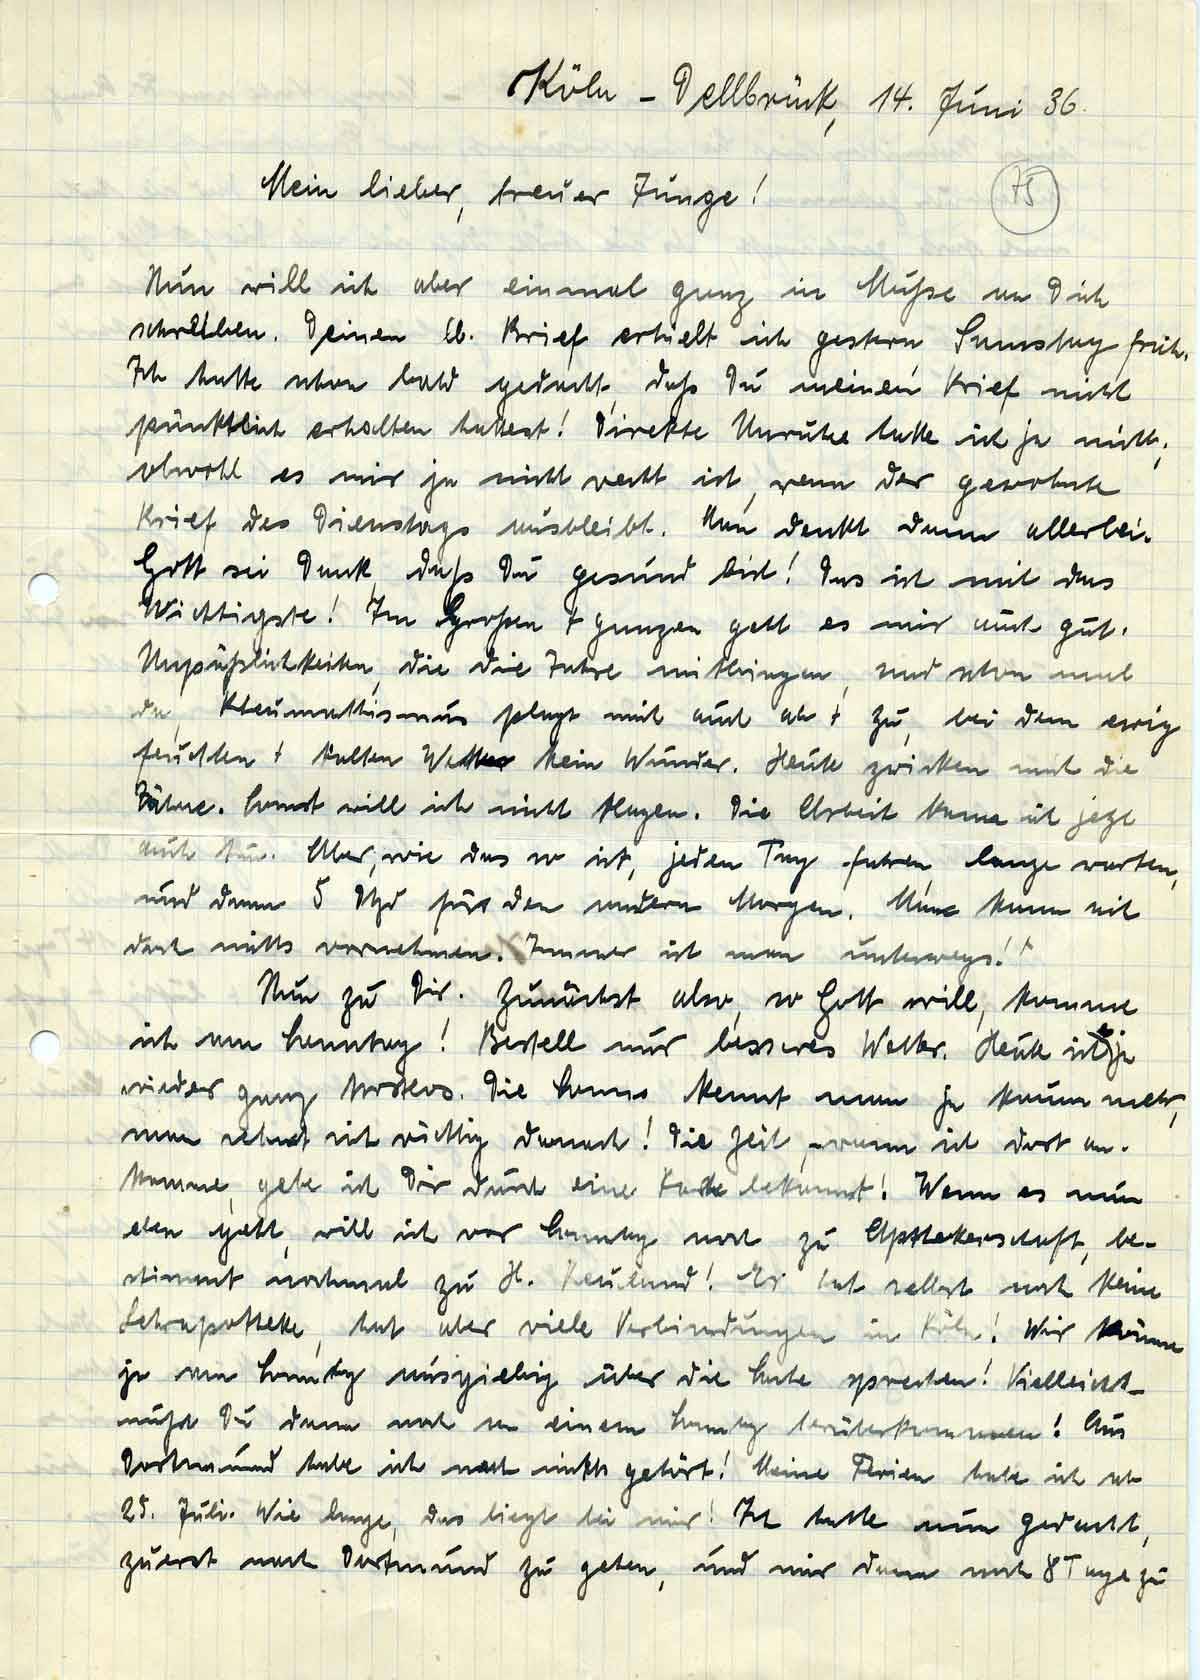 Köln - Dellbrück, 14. Juni 36.
Mein lieber, treuer Junge!
75
Nun will ich aber einmal ganz in Muße an Dich
schreiben. Deinen lb. Brief erhielt ich gestern Samstag früh.
Ich hatte schon bald gedacht, daß Du meinen Brief nicht
pünktlich erhalten hattest! Direkte Unruhe hatte ich ja nicht,
obwohl es mir ja nicht recht ist, wenn der gewohnte
Brief des Dienstags ausbleibt. Man denkt dann allerlei.
Gott sei Dank, daß Du gesund bist! Das ist mit das
Wichtigste! Im Großen + ganzen geht es mir auch gut.
Unpäßlichkeiten, die die Jahre mitbringen, sind schon mal
da, Rheumathismus plagt mich auch ab + zu, bei dem ewig
feuchten + kalten Wetter kein Wunder. Heute zwicken mich die
Zähne. Sonst will ich nicht klagen. Die Arbeit kann ich jetzt
auch tun. Aber, wie das so ist, jeden Tag fahren, lange warten,
und dann 5 Std für den andern Morgen. Man kann sich
doch nichts vornehmen. Immer ist man unterwegs!
Nun zu Dir. Zunächst also, so Gott will, komme
ich am Sonntag! Bestell nur besseres Wetter. Heute ist es ja
wieder ganz trostlos. Die Sonne kennt man ja kaum mehr,
man sehnt sich richtig danach! Die Zeit, wann ich dort an-
komme, gebe ich Dir durch eine Karte bekannt! Wenn es nun
eben geht, will ich vor Sonntag noch zu Apothekerschaft, be-
stimmt nochmal zu H. Heuland! Er hat selbst noch keine
Lehrapotheke, hat aber viele Verbindungen in Köln! Wir können
ja am Sonntag ausgiebig über die Sache sprechen! Vielleicht
mußt Du dann noch an einem Sonntag herüberkommen! Aus
Dortmund habe ich noch nichts gehört! Meine Ferien habe ich ab
25. Juli. Wie lange, das liegt bei mir! Ich hatte nun gedacht,
zuerst nach Dortmund zu gehen, und mir dann noch 8 Tage zu